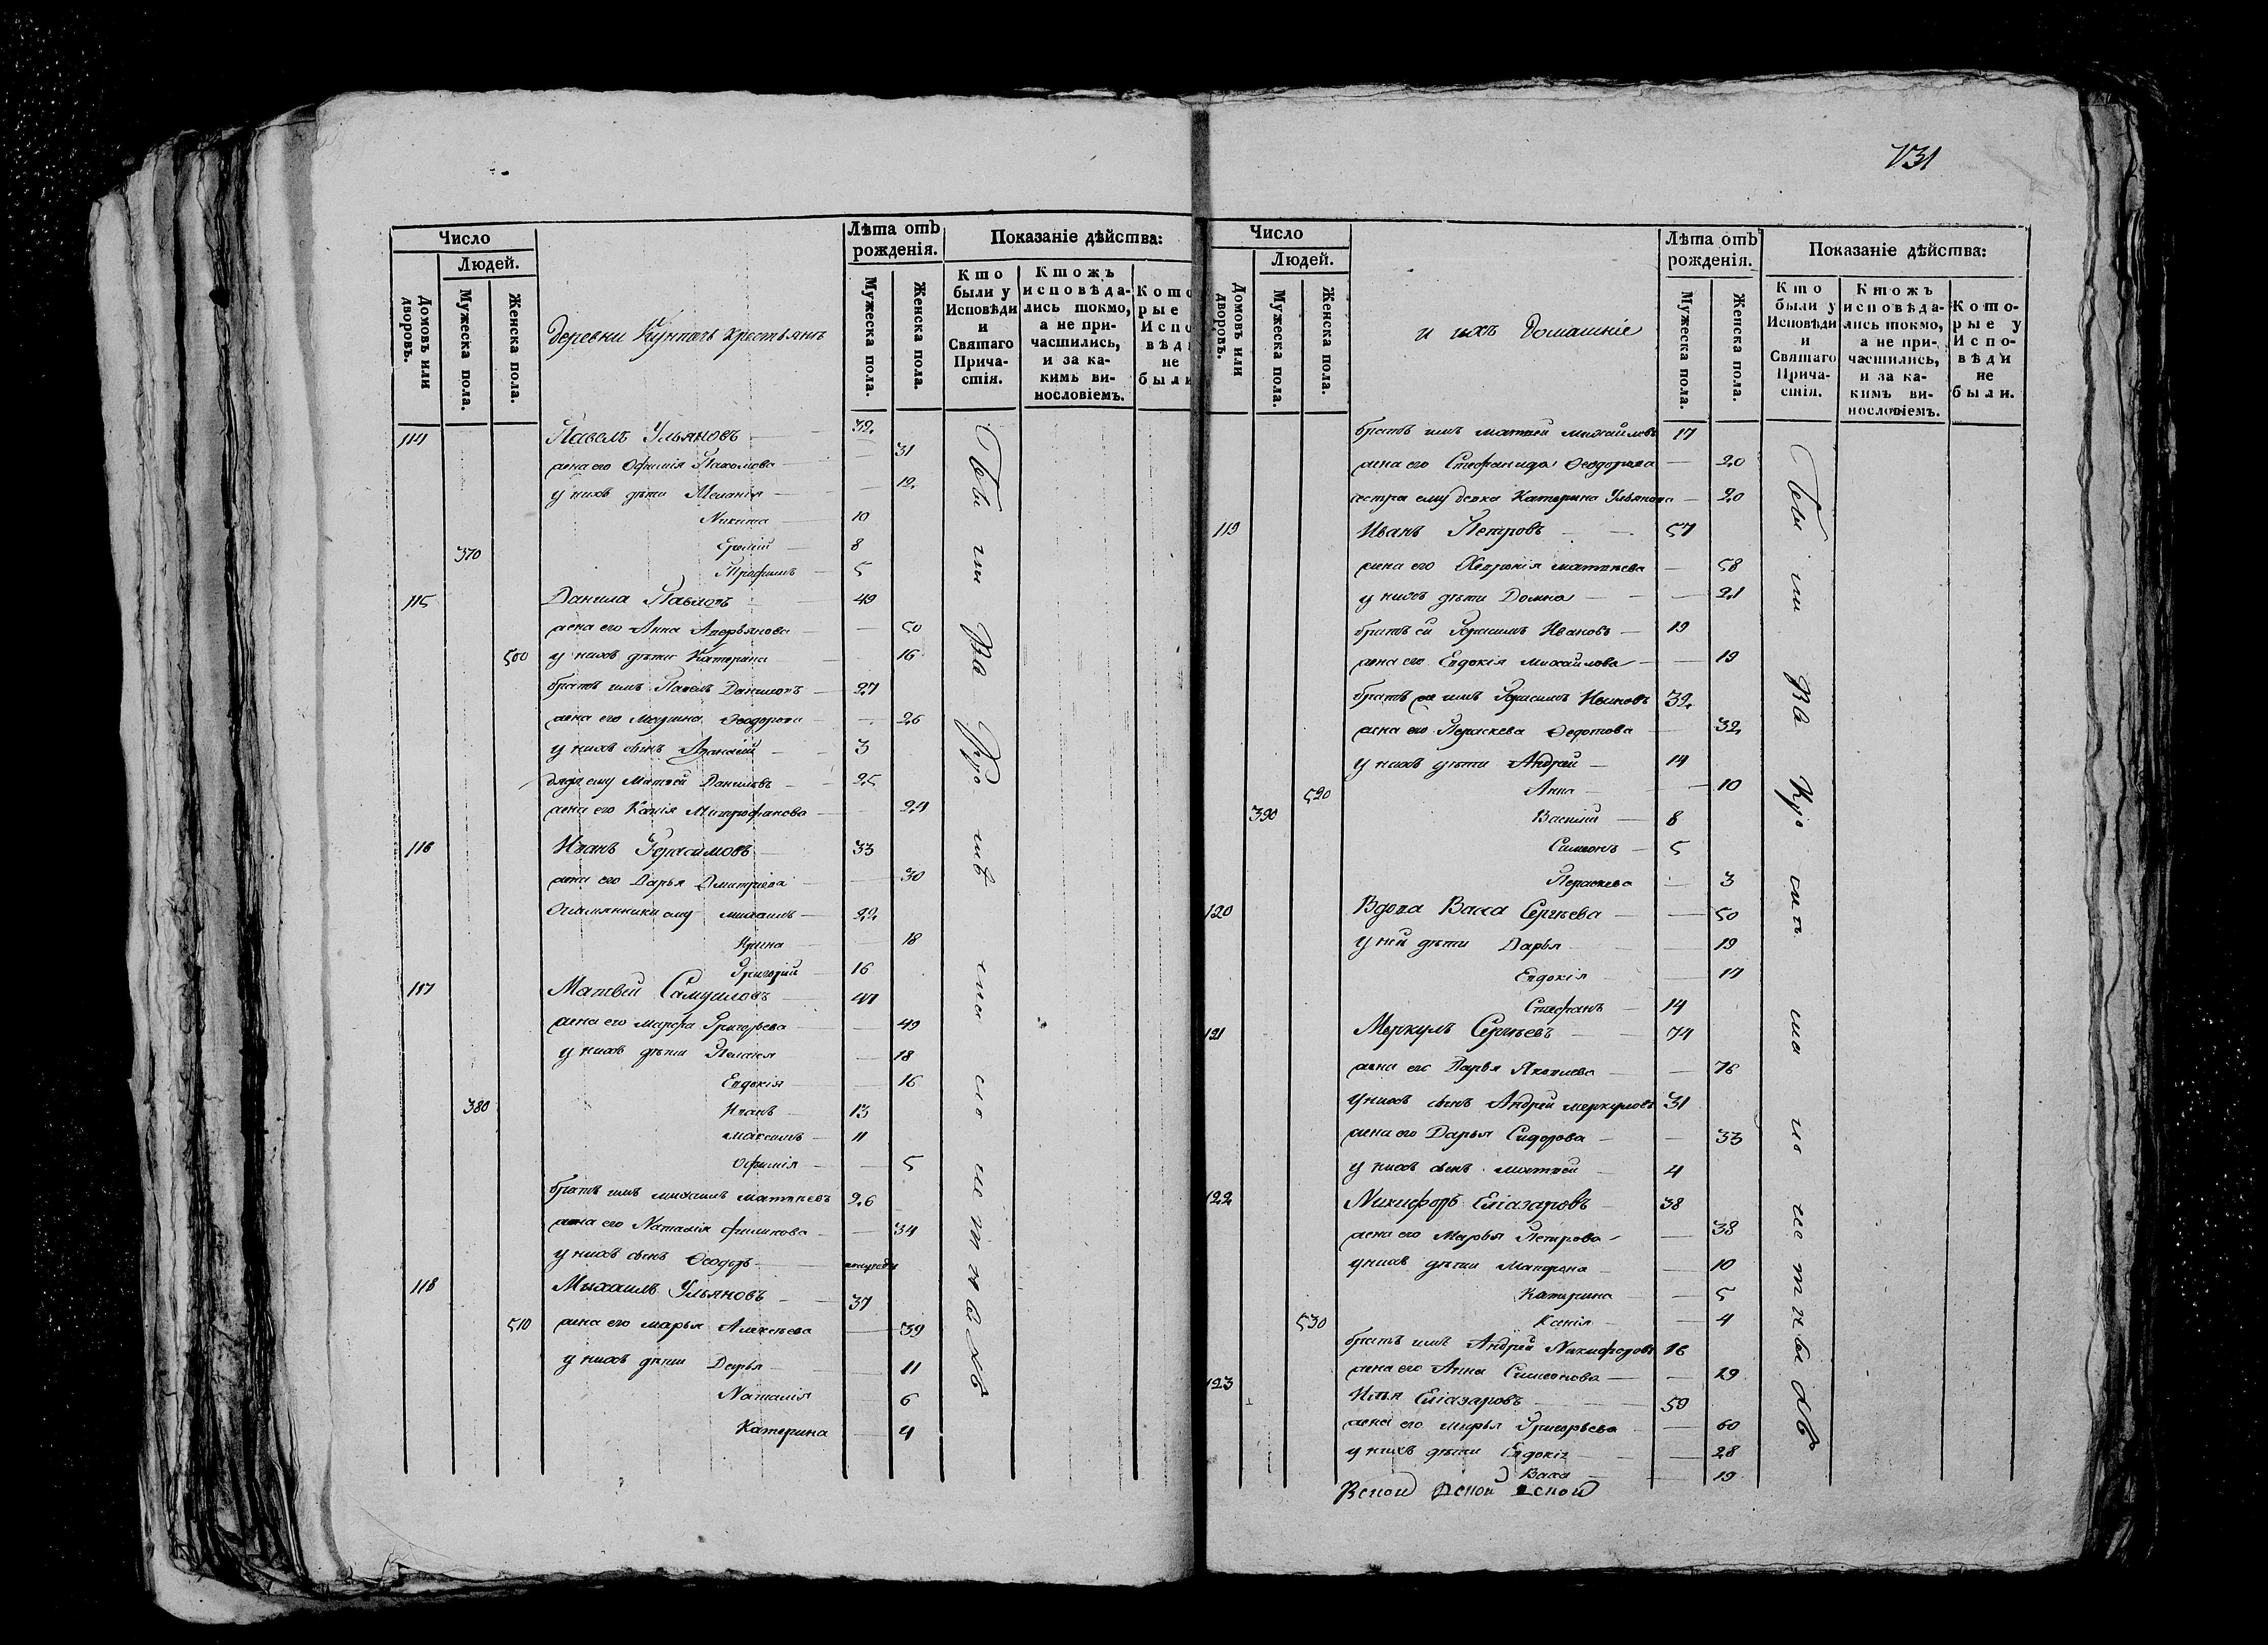 731
Число
Людей.
Домовъ или дворовъ.
Мужеска пола.
Женска пола.
деревни крестьянъ
Лѣта отъ рожденія.
Мужеска пола.
Женска пола.
Показаніе дѣйства:
Кто были у Исповѣди и Святаго Причастія.
Ктожъ исповѣдались токмо, а не причастились, и за какимъ винословіемъ.
Кото рые Испо вѣди не были
114 Павелъ Ульяновъ 32
жена его Офимія Пахомова 31
у нихъ дѣти Меланія 12
Никита 10
370 Ермій 8
Трофимъ 5
115 Данила Павловъ 49
жена его Анна Аверьянова 50
500 у нихъ дѣти Катерина 16
братъ имъ Павелъ Даниловъ 27
жена его Марина Ѳеодорова 26
у нихъ сынъ 3
ему Матвей Даниловъ 25
жена его Ксенія Митрофанова 24
116 Иванъ Герасимовъ 33
жена его Дарья Дмитріева 30
ему михаилъ 22
Ирина 18
Григорій 16
117 Матвей Самуиловъ 47
жена его марфа Григорьева 49
у нихъ дѣти Пелагея 18
Евдокія 16
380 Иванъ 13
максимъ 11
Офимія 5
братъ имъ михаилъ матвѣевъ 26
жена его Наталія филипова 34
у нихъ сынъ Ѳеодоръ полугода
118 Михаилъ Ульяновъ 37
510 жена его марья Алексѣева 39
у нихъ дѣти Дарья 11
Наталія 6
Катерина 4
Число
Людей.
Домовъ или дворовъ.
Мужеска пола.
Женска пола.
и ихъ домашніе
Лѣта отъ рожденія.
Мужеска пола.
Женска пола.
Показаніе дѣйства:
Кто были у Исповѣди и Святаго Причастія.
Ктожъ исповѣдались токмо, а не причастились, и за какимъ винословіемъ.
Которые у Исповѣди не были.
братъ имъ матвей михайловъ 17
жена его Стефанида Ѳеодорова 20
сестра ему девка Катерина Ульянова 20
119 Иванъ Петровъ 57
жена его матвѣева 58
у нихъ дѣти Домна 21
братъ ей Герасимъ Ивановъ 19
жена его Евдокія михайлова 19
братъ имъ Герасимъ Ивановъ 32
жена его Параскева Ѳедотова 32
у нихъ дѣти Андрей 14
520 Анна 10
390 Василій 8
Симеонъ 5
Параскева 3
120 Вдова Васса Сергѣева 50
у ней дѣти Дарья 19
Евдокія 17
Стефанъ 14
121 Меркулъ Сергѣевъ 74
жена его Дарья Яковлева 76
у нихъ сынъ Андрей меркуловъ 31
жена его Дарья Сидорова 33
у нихъ сынъ матвей 4
122 Никифоръ Еліазаровъ 38
жена его Марья Петрова 38
у нихъ дѣти Матрона 10
Катерина 5
530 Ксенія 4
братъ имъ Андрей Никифоровъ 18
жена его Анна Симеонова 19
123 Илья Еліазаровъ 59
жена его марья Григорьева 60
у нихъ дѣти Евдокія 28
Васса 19